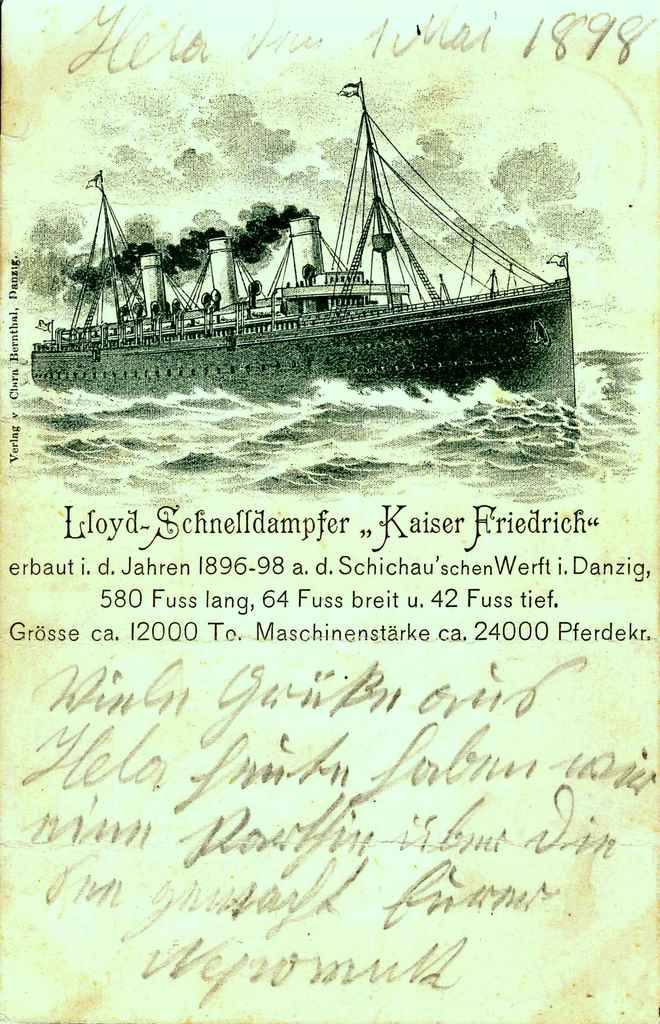 Hela den 1 Mai 1898
Verlag v Clara Bernthal, Danzig.
Lloyd-Schnelldampfer „Kaiser Friedrich“
erbaut i. d. Jahren 1896-98 a. d. Schichau'schen Werft i. Danzig,
580 Fuss lang, 64 Fuss breit u. 42 Fuss tief.
Grösse ca. 12000 To. Maschinenstärke ca. 24000 Pferdekr.
Viele Grüße aus
Hela heute haben wir
eine Parthie über die
See gemacht Eurer
Nepomuk